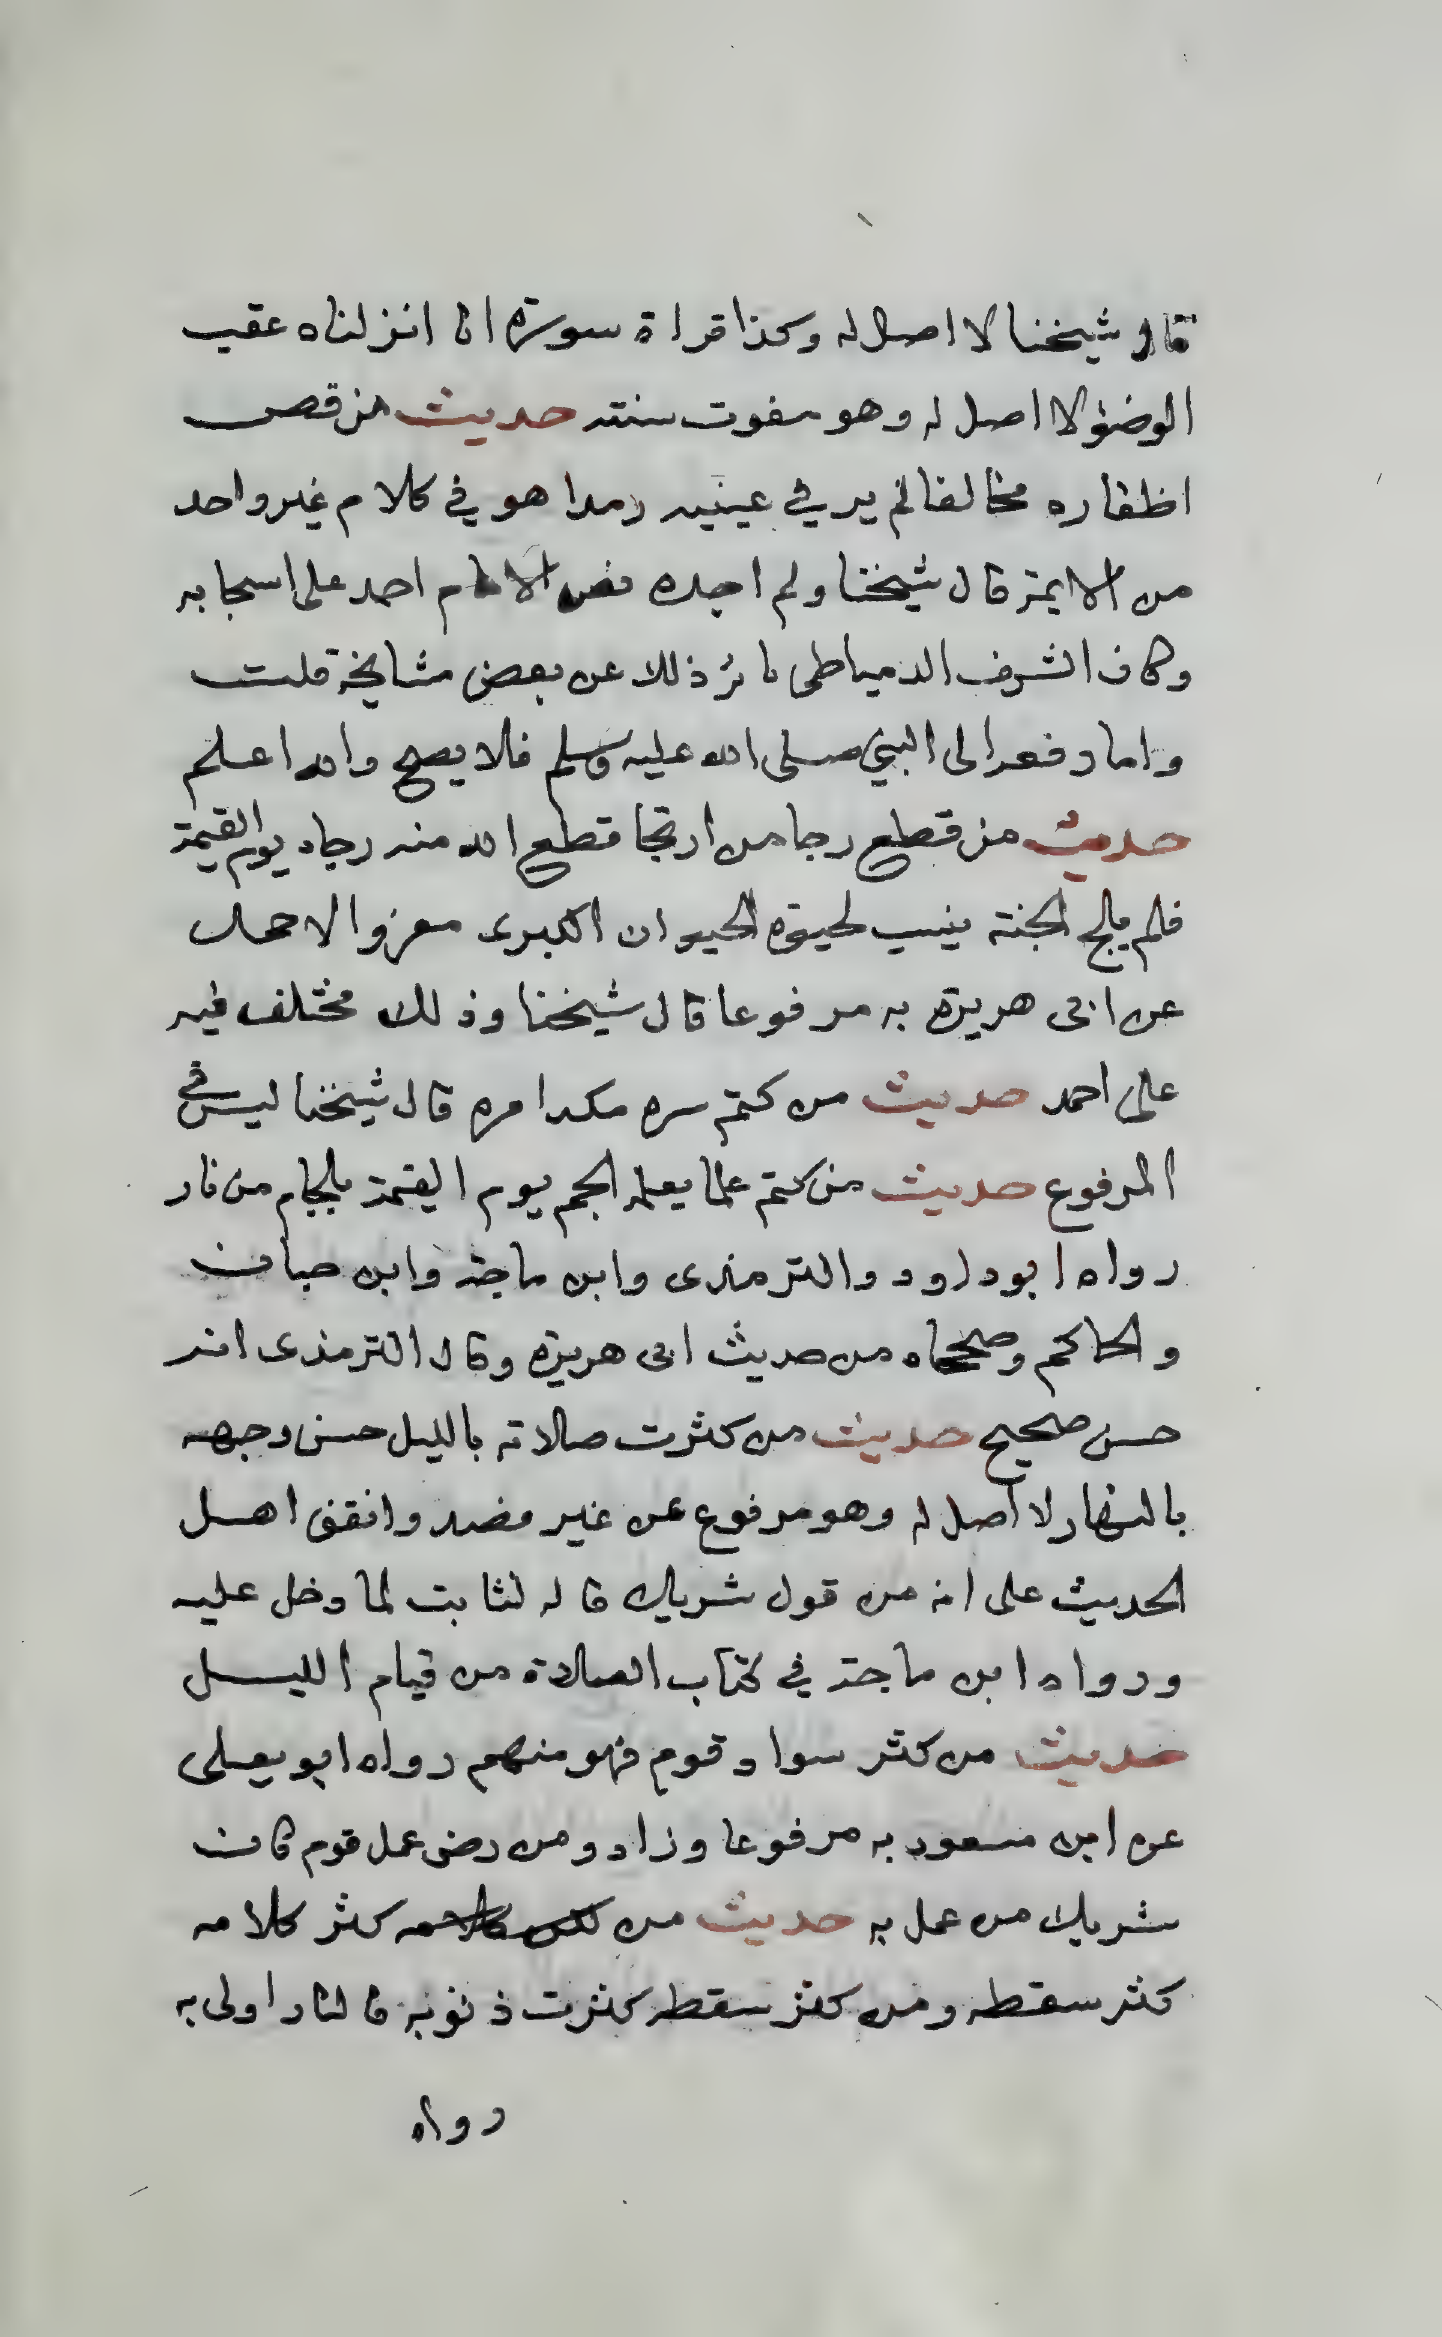 قال شيخنا لا اصل له وكذا قراة سورة انا انزلناه عقب
الوضؤ لا اصل له وهو مفوت سنته حديث من قص
اظفاره مخالفا لم ير في عينيه رمدا هو في كلام غير واحد
من الايمة قال شيخنا ولم اجده نص الامام احمد على اسحابه
وكان الشرف الدمياطي ياثر ذلك عن بعض مشايخه قلت
واما رفعه الى النبي صلى الله عليه وسلم فلا يصح والله اعلم
حديث من قطع رجا من ارتجا قطع الله منه رجاه يوم القيمة
فلم يلج الجنة ينسب لحيوة الحيوان الكبرى معزوا لاحمد
عن ابي هريرة به مرفوعا قال شيخنا وذلك مختلف فيه
على احمد حديث من كتم سره ملك امره قال شيخنا ليس في
المرفوع حديث من كتم علما يعلمه الجم يوم القيمة بلجام من نار
رواه ابو داود والترمذى وابن ماجة وابن حبان
والحاكم وصححاه من حديث ابى هريرة وقال الترمذى انه
حسن صحيح حديث من كثرت صلاته بالليل حسن وجهه
بالنهار لا اصل له وهو مرفوع عن غير قصد واتفق اهل
الحديث على انه من قول شريك قاله لثابت لما دخل عليه
ورواه ابن ماجة في كتاب الصلاة من قيام الليل
حديث من كثر سواد قوم فهو منهم رواه ابو يعلى
عن ابن مسعود به مرفوعا وزاد ومن رضى عمل قوم كان
شريك من عمل به حديث من كثر كلامه
كثر سقطه ومن كثر سقطه كثرت ذنوبه فالنار اولى به
رواه